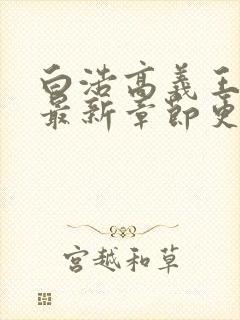 白浩高义王
最新章节更
宫越和草